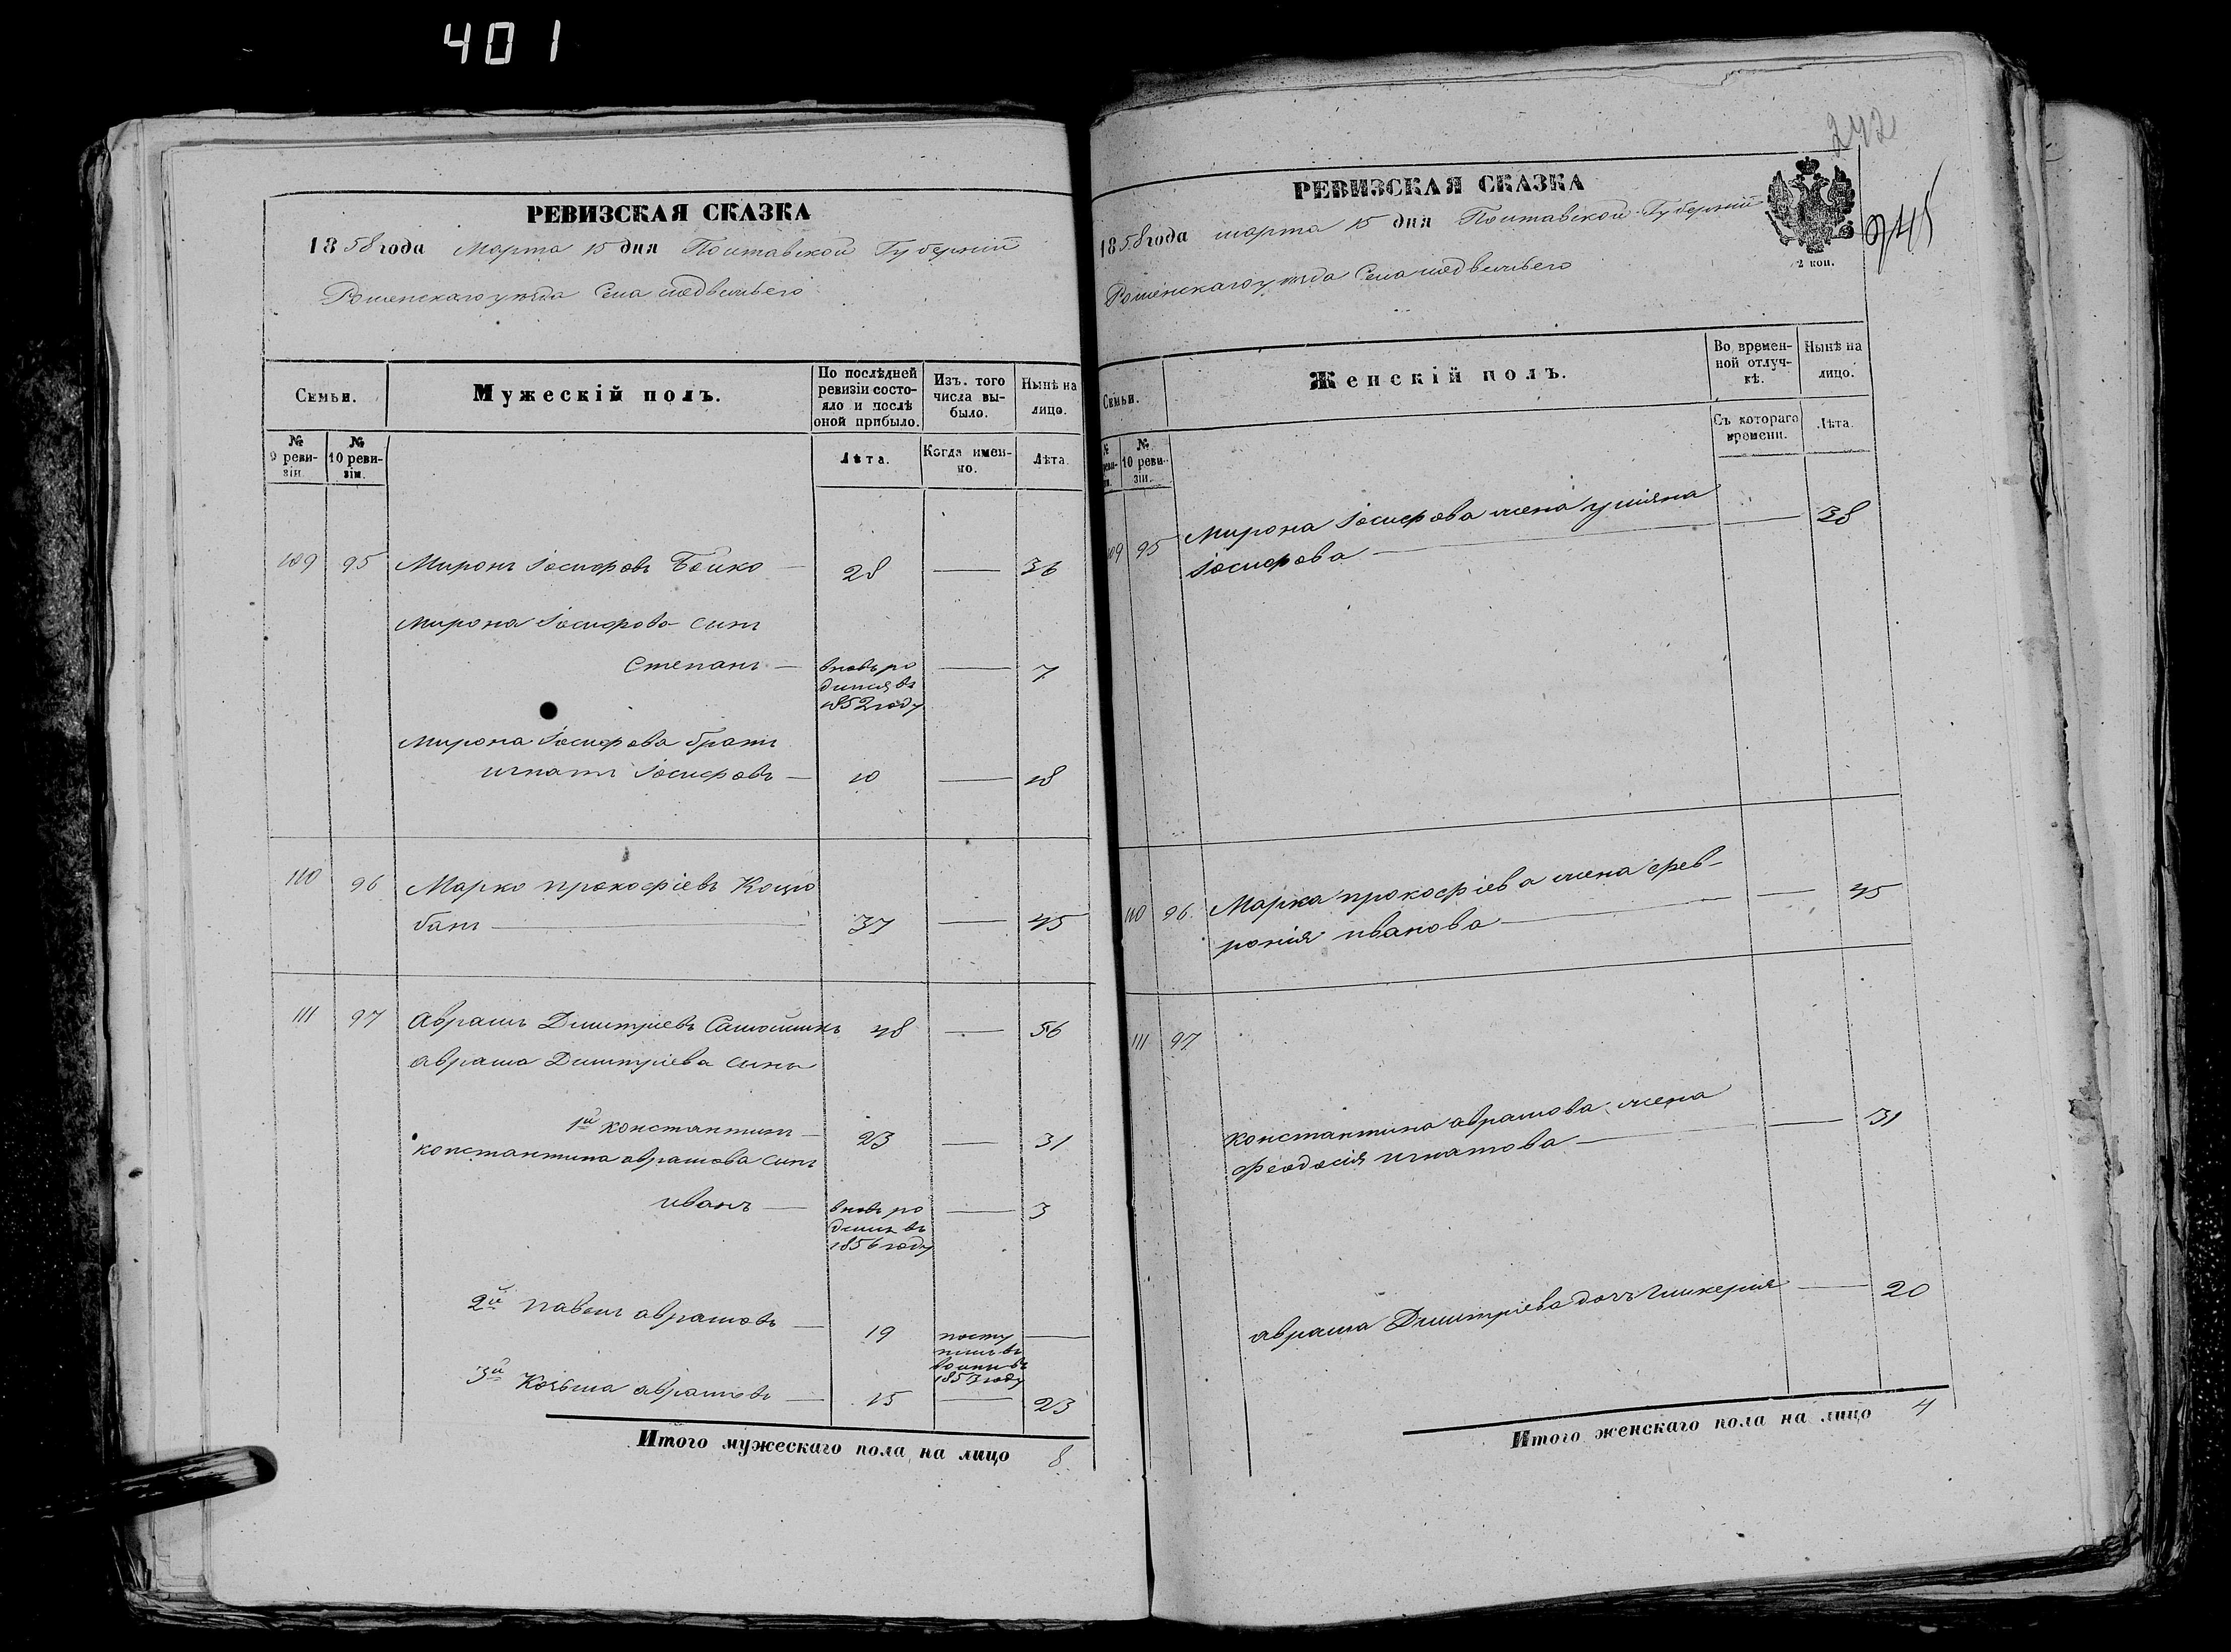 401
РЕВИЗСКАЯ СКАЗКА
1858 года Марта 15 дня Полтавской Губерніи
Роменскаго уезда Села медвежьего
Семьи.
Мужескій полъ.
По послѣдней ревизіи состояло и послѣ оной прибыло.
Изъ того числа выбыло.
Нынѣ на лицо.
№ 9 ревизіи.
№ 10 ревизіи.
Лѣта.
Когда именно.
Лѣта.
109 95 Миронъ Іосифовъ Бойко — 28 — 36
Мирона Іосифова сынъ
Степанъ — вновь ро — 7
дился въ
1852 году
Мирона Іосифова братъ
игнатъ Іосифовъ — 10 — 18
110 96 Марко прокофіевъ Коцю
банъ — 37 — 45
111 97 Аврамъ Димитріевъ 48 — 56
аврама Димитріева сыны
1й константинъ — 23 — 31
константина аврамова сынъ
иванъ — вновь ро — 3
дился въ
1856 году
2й павелъ аврамовъ — 19 посту —
пилъ въ
1853 году
3й Козьма аврамовъ — 15 — 23
Итого мужескаго пола на лицо 8
242
РЕВИЗСКАЯ СКАЗКА
2 коп.
245
1858 года марта 15 дня Полтавской Губерніи
Роменскаго уезда Села медвежьего
Семьи.
Женскій полъ.
Во временной отлучкѣ.
Нынѣ на лицо.
№ 10 ревизіи.
Съ котораго времени.
Лѣта.
109 95 Мирона Іосифова жена уліяна
Іосифова — — 38
110 96 Марка прокофіева жена фев-
ронія иванова — — 45
111 97
константина аврамова жена
феодосія игнатова — — 31
аврама Димитріева дочь гликерія — 20
Итого женскаго пола на лицо 4